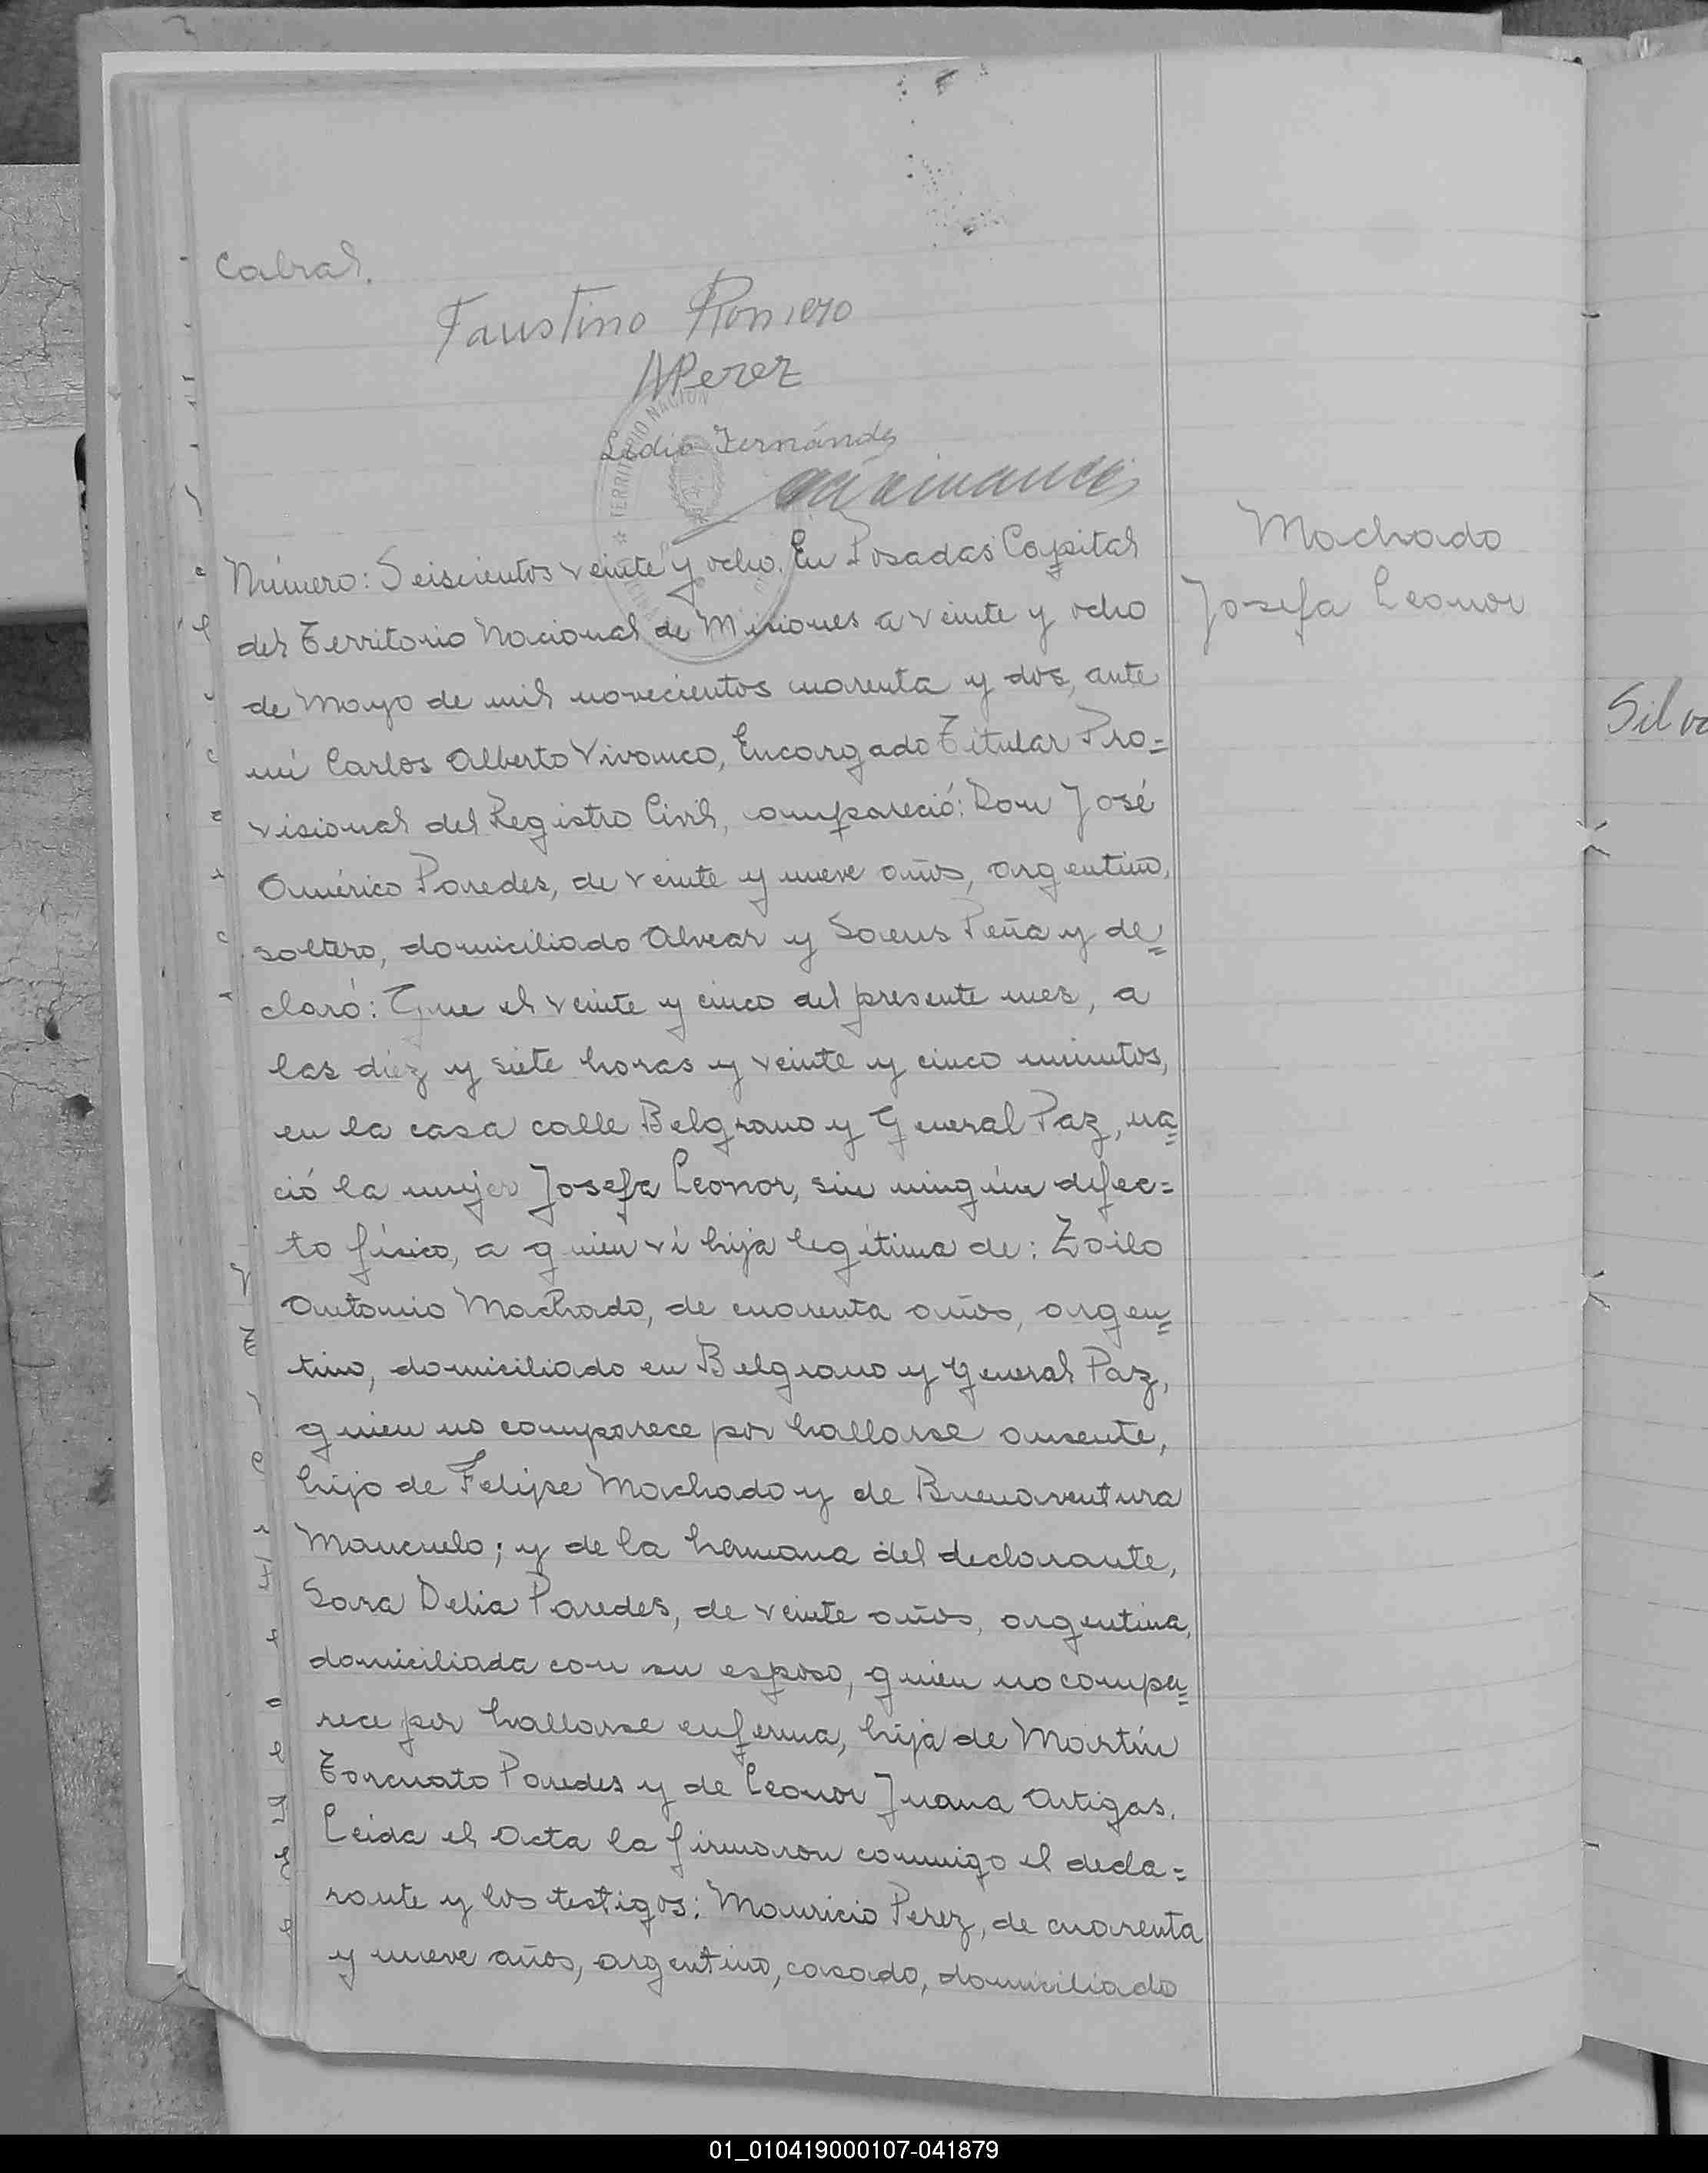 Cabral.
Faustino Romero
MPerez
Lidia Fernández
TERRITORIO NACION
Número: Seiscientos veinte y ocho. En Posadas Capital
del Territorio Nacional de Misiones a veinte y ocho
de Mayo de mil novecientos cuarenta y dos, ante
mí Carlos Alberto Vivanco, Encargado Titular Pro=
visional del Registro Civil, compareció: Don José
Américo Paredes, de veinte y nueve años, argentino,
soltero, domiciliado Alvear y Saens Peña y de=
claró: Que el veinte y cinco del presente mes, a
las diez y siete horas y veinte y cinco minutos,
en la casa calle Belgrano y General Paz, na=
ció la mujer Josefa Leonor, sin ningún defec=
to físico, a quien ví hija legítima de: Zoilo
Antonio Machado, de cuarenta años, argen=
tino, domiciliado en Belgrano y General Paz,
quien no comparece por hallarse ausente,
hijo de Felipe Machado y de Buenaventura
Mancuelo; y de la hermana del declarante,
Sara Delia Paredes, de veinte años, argentina,
domiciliada con su esposo, quien no compa=
rece por hallarse enferma, hija de Martín
Torcuato Paredes y de Leonor Juana Artigas.
Leida el Acta la firmaron conmigo el decla=
rante y los testigos: Mauricio Perez, de cuarenta
y nueve años, argentino, casado, domiciliado
Machado
Josefa Leonor
Silva
01_010419000107-041879